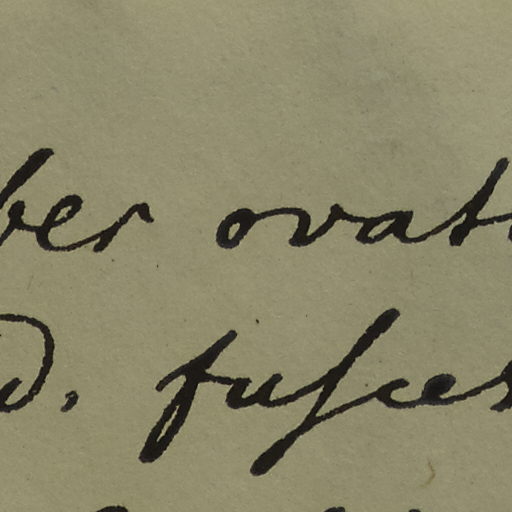 ber ovat
d. fusces